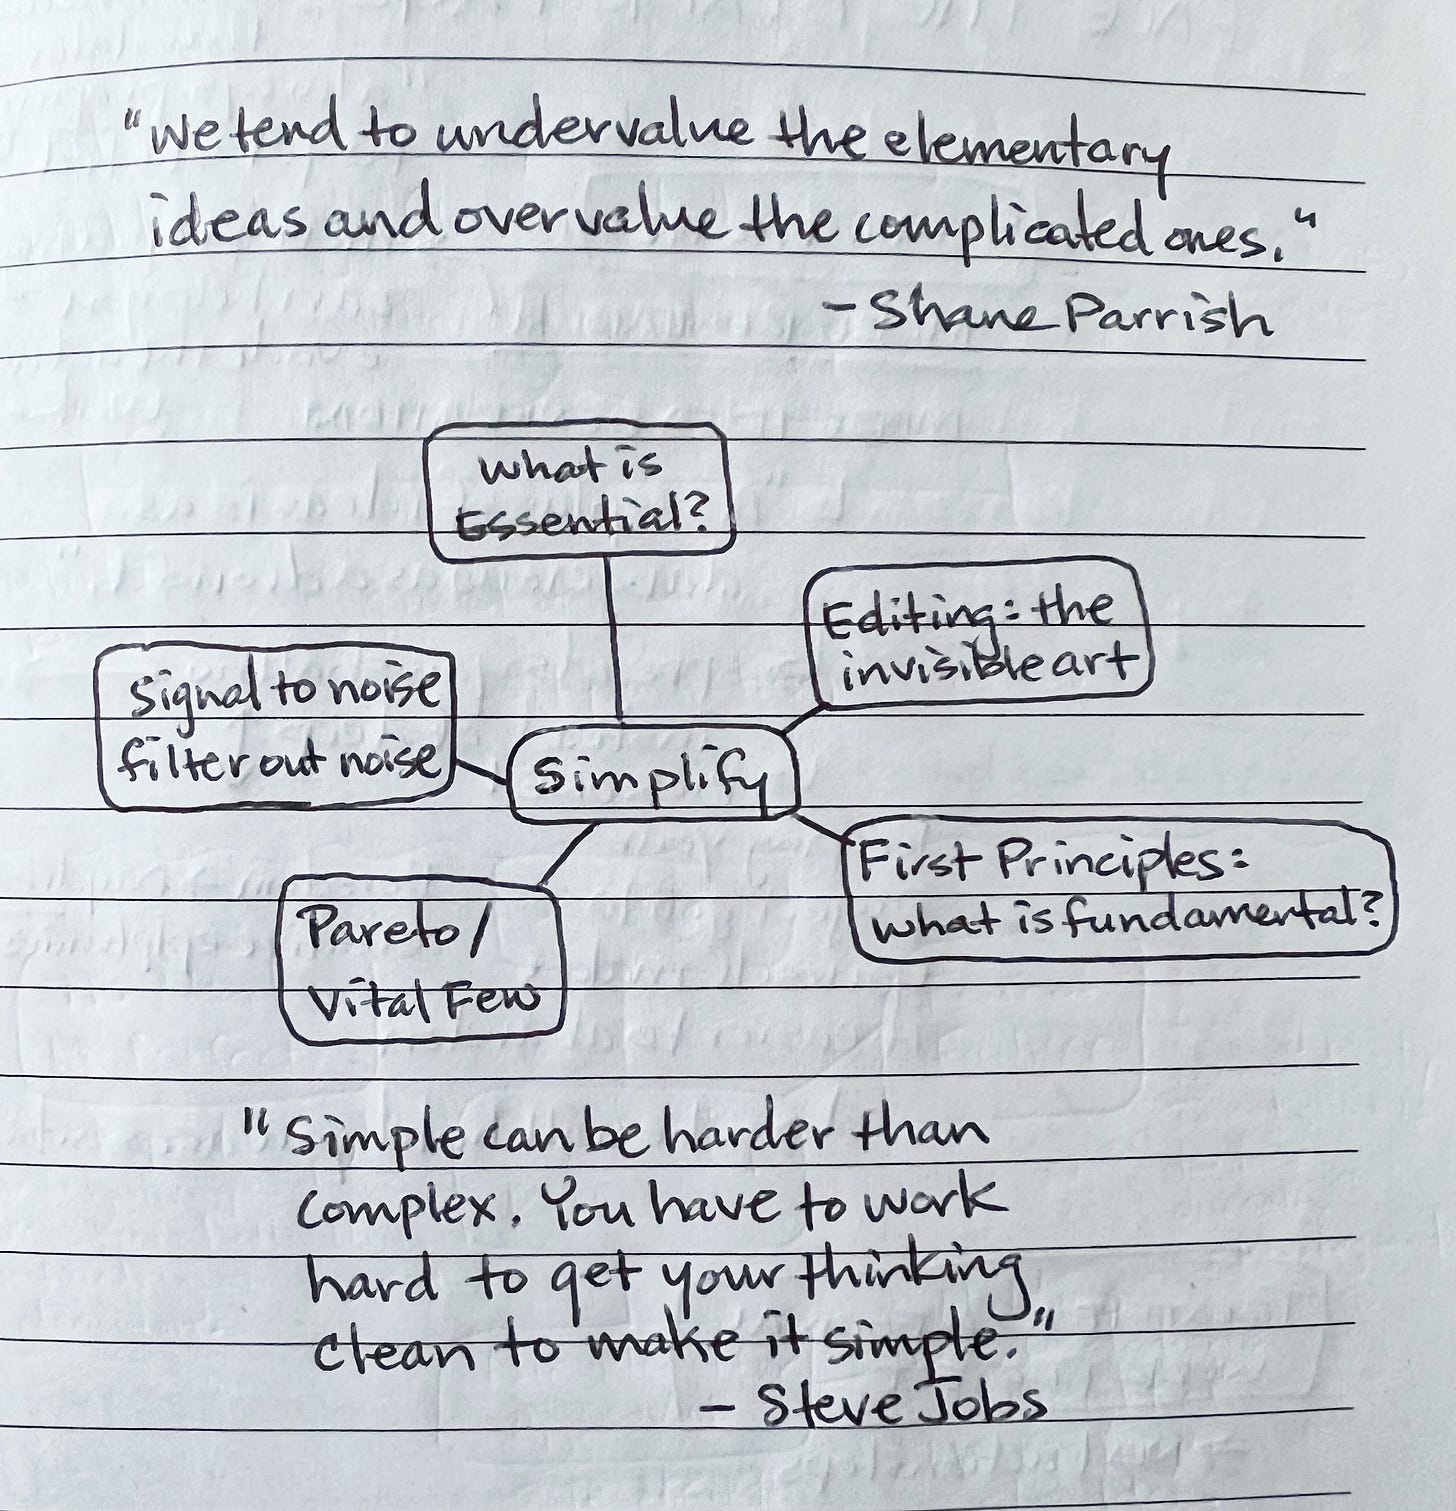 "We tend to undervalue the elementary
ideas and overvalue the complicated ones."
- Shane Parrish
What is
Essential?
Editing: the
invisible art
Signal to noise
filter out noise
Simplify
First Principles:
what is fundamental?
Pareto/
Vital Few
"Simple can be harder than
complex. You have to work
hard to get your thinking
clean to make it simple."
- Steve Jobs